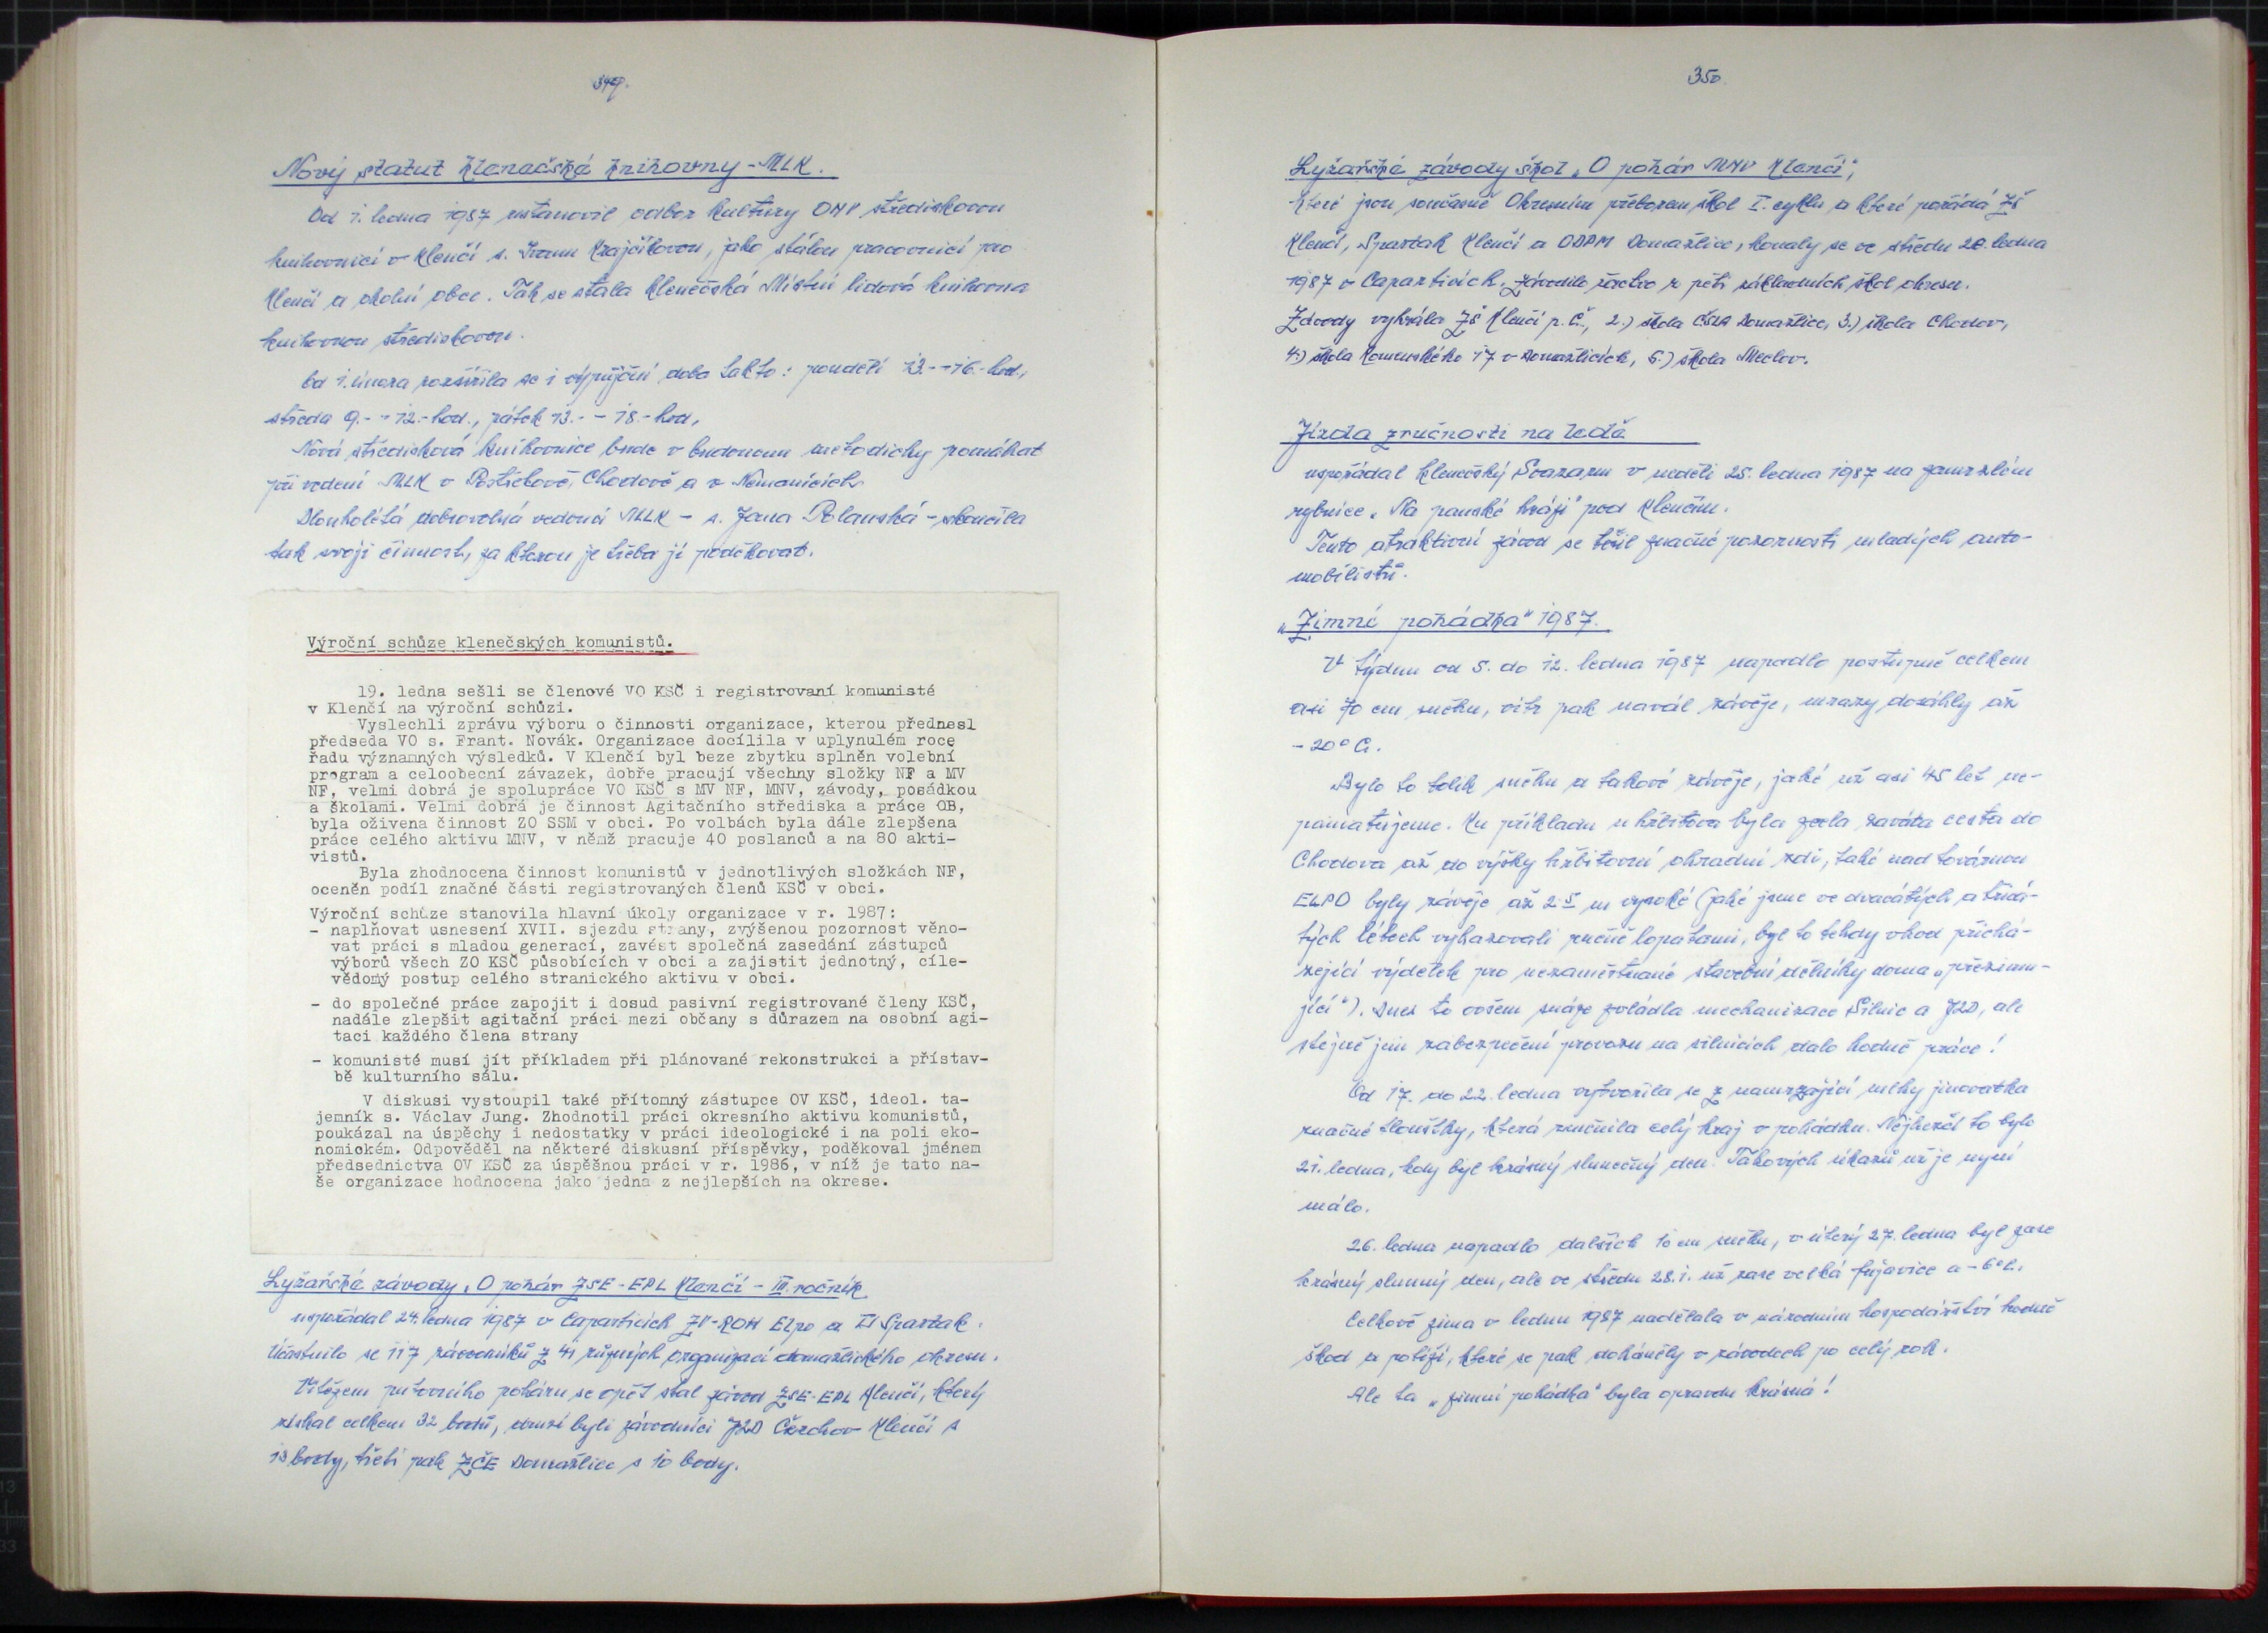 349.
Nový statut klenečské knihovny - MLK.
Od 1. ledna 1987 ustanovil odbor kultury ONV střediskovou
knihovnicí v Klenčí s. Ivanu Krajčíkovou, jako stálou pracovnicí pro
Klenčí a okolní obce. Tak se stala klenečská Místní lidová knihovna
knihovnou střediskovou.
Od 1. února rozšířila se i výpůjční doba takto: pondělí 13.--16.-hod,
středa 9.--12.-hod., pátek 13.--18.-hod,
Nová středisková knihovnice bude v budoucnu metodicky pomáhat
při vedení MLK v Postřekově, Chodově a v Nemanicích.
Dlouholetá dobrovolná vedoucí MLK - s. Jana Polanská - skončila
tak svoji činnost, za kterou je třeba jí poděkovat.
Výroční schůze klenečských komunistů.
19. ledna sešli se členové VO KSČ i registrovaní komunisté
v Klenčí na výroční schůzi.
Vyslechli zprávu výboru o činnosti organizace, kterou přednesl
předseda VO s. Frant. Novák. Organizace docílila v uplynulém roce
řadu významných výsledků. V Klenčí byl beze zbytku splněn volební
program a celoobecní závazek, dobře pracují všechny složky NF a MV
NF, velmi dobrá je spolupráce VO KSČ s MV NF, MNV, závody, posádkou
a školami. Velmi dobrá je činnost Agitačního střediska a práce OB,
byla oživena činnost ZO SSM v obci. Po volbách byla dále zlepšena
práce celého aktivu MNV, v němž pracuje 40 poslanců a na 80 akti-
vistů.
Byla zhodnocena činnost komunistů v jednotlivých složkách NF,
oceněn podíl značné části registrovaných členů KSČ v obci.
Výroční schůze stanovila hlavní úkoly organizace v r. 1987:
- naplňovat usnesení XVII. sjezdu strany, zvýšenou pozornost věno-
vat práci s mladou generací, zavést společná zasedání zástupců
výborů všech ZO KSČ působících v obci a zajistit jednotný, cíle-
vědomý postup celého stranického aktivu v obci.
- do společné práce zapojit i dosud pasivní registrované členy KSČ,
nadále zlepšit agitační práci mezi občany s důrazem na osobní agi-
taci každého člena strany
- komunisté musí jít příkladem při plánované rekonstrukci a přístav-
bě kulturního sálu.
V diskusi vystoupil také přítomný zástupce OV KSČ, ideol. ta-
jemník s. Václav Jung. Zhodnotil práci okresního aktivu komunistů,
poukázal na úspěchy i nedostatky v práci ideologické i na poli eko-
nomickém. Odpověděl na některé diskusní příspěvky, poděkoval jménem
předsednictva OV KSČ za úspěšnou práci v r. 1986, v níž je tato na-
še organizace hodnocena jako jedna z nejlepších na okrese.
Lyžařské závody „O pohár ZSE - EPL Klenčí - III. ročník
uspořádal 24. ledna 1987 v Caparticích ZV-ROH Elpo a TJ Spartak.
Účastnilo se 117 závodníků z 41 různých organizací domažlického okresu.
Vítězem putovního poháru se opět stal závod ZSE-EPL Klenčí, který
získal celkem 32 bodů, druzí byli závodníci JZD Čerchov Klenčí s
13 body, třetí pak ZČE Domažlice s 10 body.
350.
Lyžařské závody škol „O pohár MNV Klenčí",
které jsou současně Okresním přeborem škol I. cyklu a které pořádá ZŠ
Klenčí, Spartak Klenčí a ODPM Domažlice, konaly se ve středu 28. ledna
1987 v Caparticích. Závodilo žactvo z pěti základních škol okresu.
Závody vyhrála ZŠ Klenčí p. Č., 2.) škola ČSLA Domažlice, 3.) škola Chodov,
4.) škola Komenského 17 v Domažlicích, 5.) škola Meclov.
Jízda zručnosti na ledě
uspořádal klenečský Svazarm v neděli 25. ledna 1987 na zamrzlém
rybníce „Na panské hrázi" pod Klenčím.
Tento atraktivní závod se těšil značné pozornosti mladých auto-
mobilistů.
„Zimní pohádka" 1987.
V týdnu od 5. do 12. ledna 1987 napadlo postupně celkem
asi 70 cm sněhu, vítr pak navál závěje, mrazy dosáhly až
- 20° C.
Bylo to tolik sněhu a takové závěje, jaké už asi 45 let ne-
pamatujeme. Ku příkladu u hřbitova byla zcela zaváta cesta do
Chodova až do výšky hřbitovní ohradní zdi, také nad továrnou
ELPO byly závěje až 2.5 m vysoké (jaké jsme ve dvacátých a třicá-
tých létech vyhazovali ručně lopatami, byl to tehdy vhod přichá-
zející výdělek pro nezaměstnané stavební dělníky doma „přezimu-
jící"). Dnes to ovšem snáze zvládla mechanizace Silnic a JZD, ale
stejně jim zabezpečení provozu na silnicích dalo hodně práce!
Od 17. do 22. ledna vytvořila se z namrzající mlhy jinovatka
značné tloušťky, která změnila celý kraj v pohádku. Nejhezčí to bylo
21. ledna, kdy byl krásný slunečný den. Takových úkazů už je nyní
málo.
26. ledna napadlo dalších 10 cm sněhu, v úterý 27. ledna byl zase
krásný slunný den, ale ve středu 28. 1. už zase velká fujavice a -6°C.
Celkově zima v lednu 1987 nadělala v národním hospodářství hodně
škod a potíží, které se pak doháněly v závodech po celý rok.
Ale ta „zimní pohádka" byla opravdu krásná!